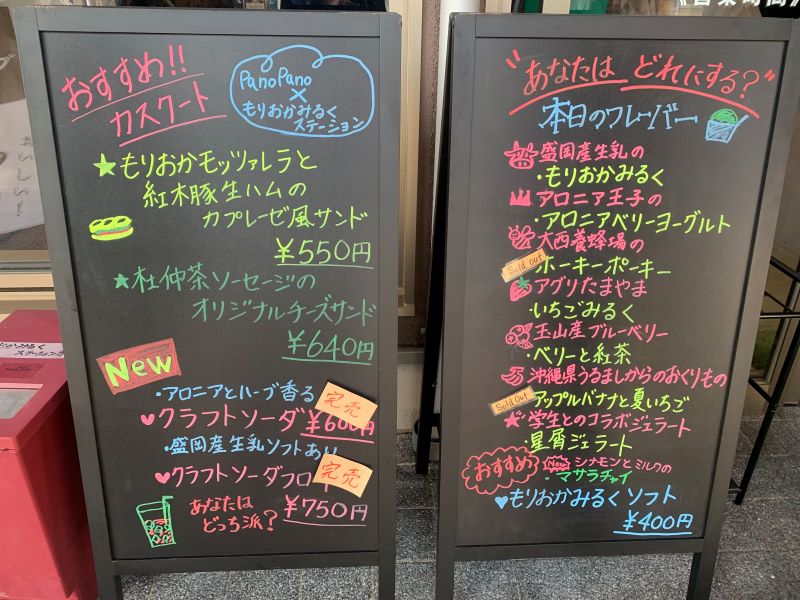 おすすめ!!
カスクート
PanoPano
×
もりおかみるく
ステーション
★もりおかモッツァレラと
紅木豚生ハムの
カプレーゼ風サンド
¥550円
★杜仲茶ソーセージの
オリジナルチーズサンド
¥640円
New
・アロニアとハーブ香る
♥クラフトソーダ ¥600円
完売
・盛岡産生乳ソフトあり
♥クラフトソーダフロート
完売
¥750円
あなたは
どっち派?
"あなたは どれにする?"
本日のフレーバー
盛岡産生乳の
・もりおかみるく
アロニア王子の
・アロニアベリーヨーグルト
大西養蜂場の
Sold out
ホーキーポーキー
アグリたまやま
・いちごみるく
玉山産ブルーベリー
・ベリーと紅茶
沖縄県うるましからのおくりもの
Sold out
アップルバナナと夏いちご
★学生とのコラボジェラート
・星屑ジェラート
おすすめ
New シナモンとミルクの
・マサラチャイ
♥もりおかみるくソフト
¥400円
おいしい!